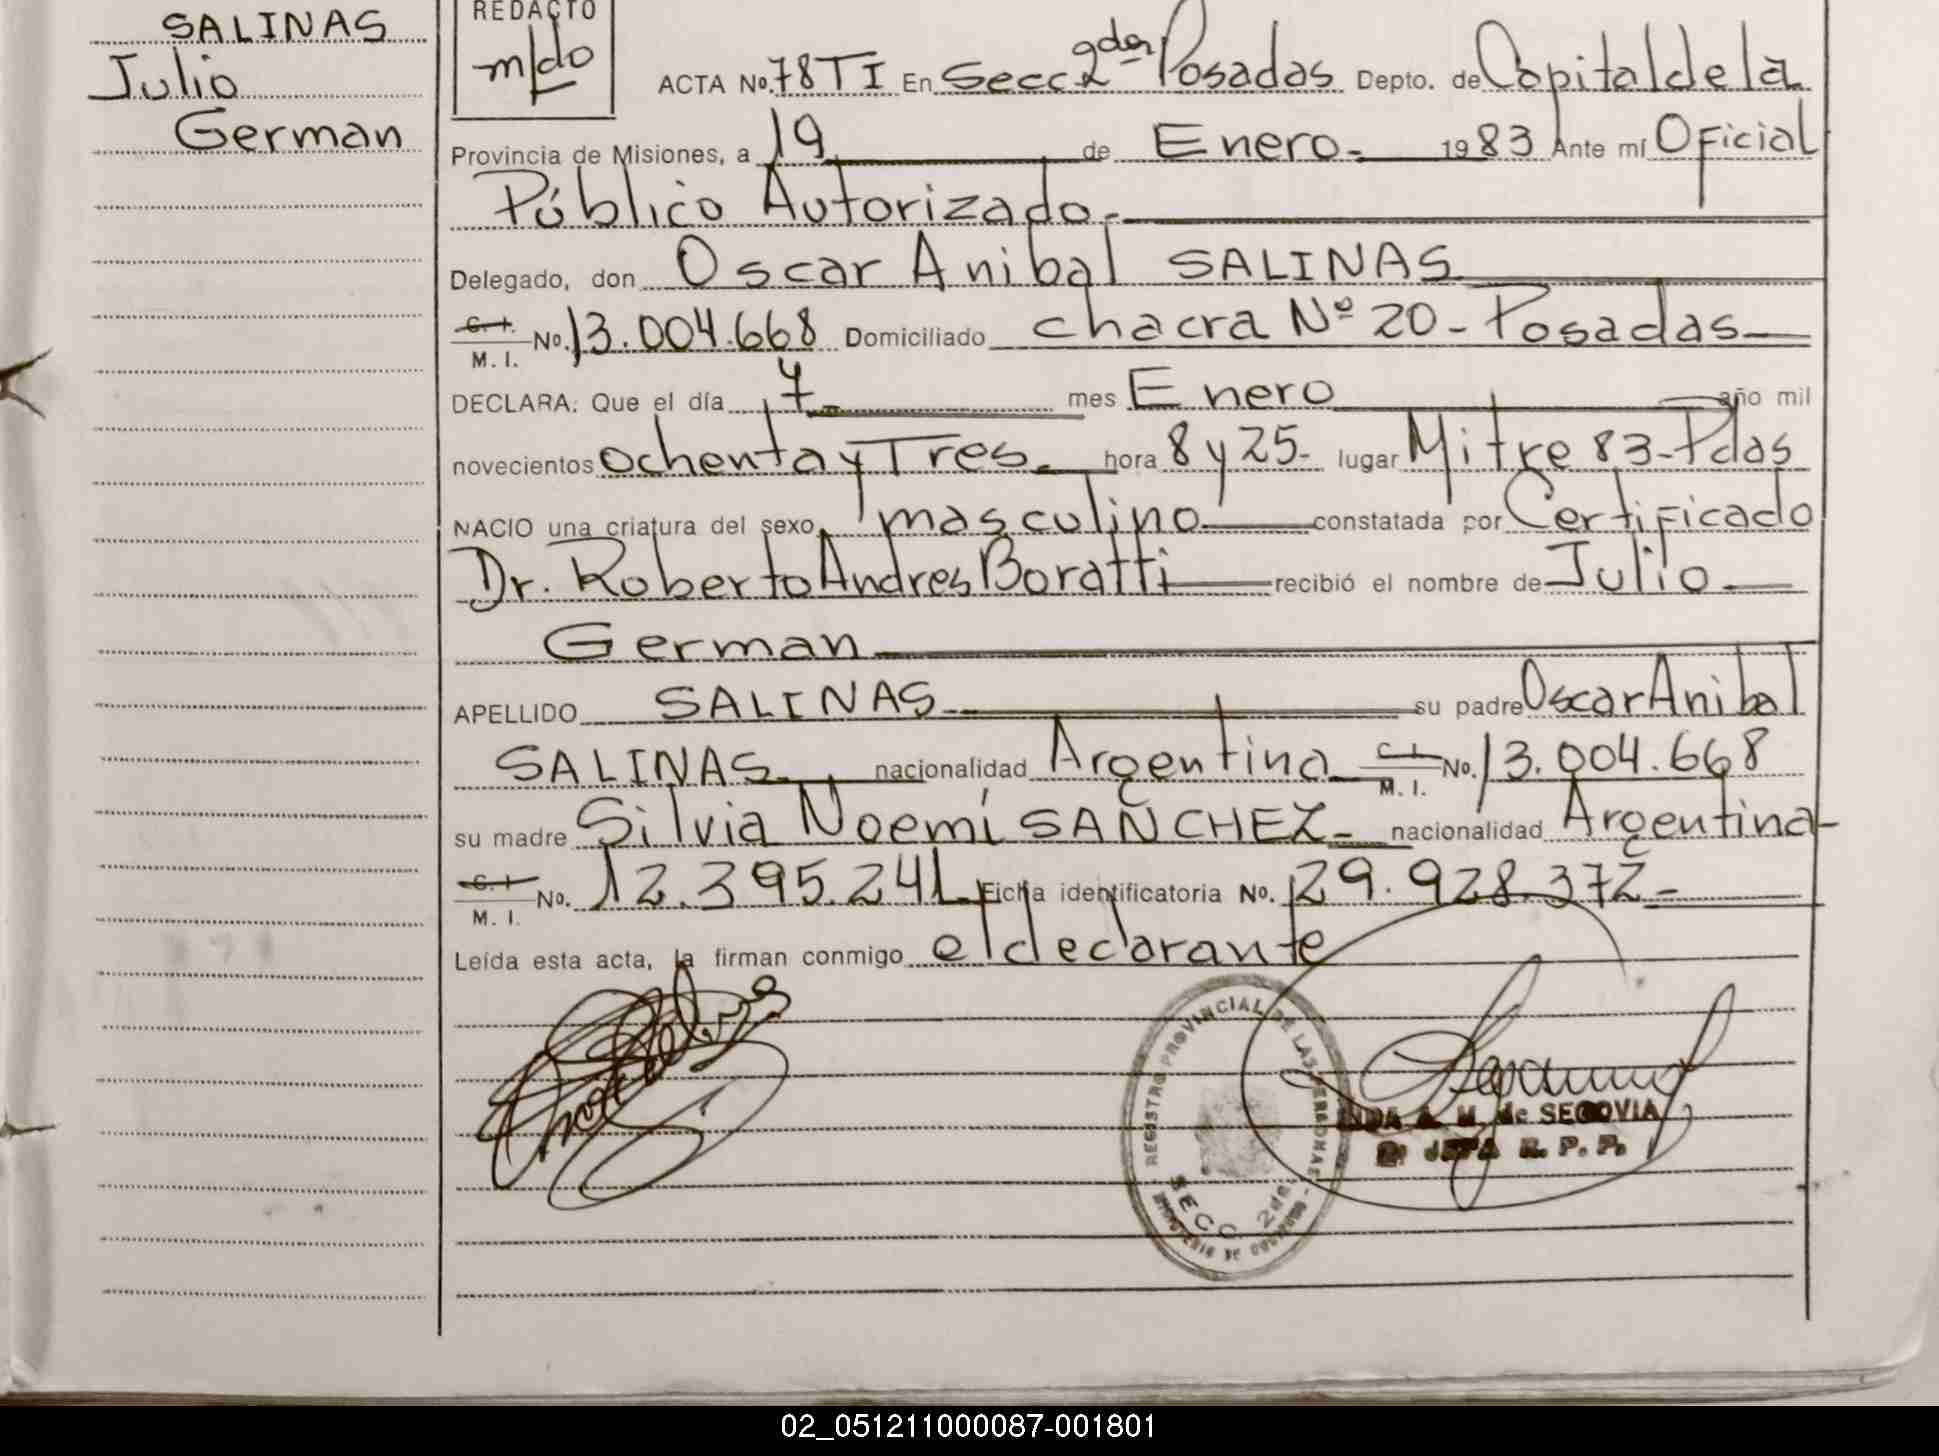 SALINAS
Julio
German
REDACTO
ACTA No. 78 TI En Secc 2da Posadas Depto. de Capital de la
Provincia de Misiones, a 19 de Enero 1983 Ante mí Oficial
Público Autorizado.-
Delegado, don Oscar Anibal SALINAS
C. I. M. I. No. 13.004.668 Domiciliado chacra Nº 20 - Posadas
DECLARA: Que el día 7 mes Enero año mil
novecientos ochenta y Tres hora 8 y 25 - lugar Mitre 83 - Pdas
NACIO una criatura del sexo masculino constatada por Certificado
Dr. Roberto Andres Boratti recibió el nombre de Julio
German
APELLIDO SALINAS su padre Oscar Anibal
SALINAS nacionalidad Argentina C. I. M. I. No. 13.004.668
su madre Silvia Noemí SANCHEZ nacionalidad Argentina
C. I. M. I. No. 12.395.241 Ficha identificatoria No. 29.928.372
Leída esta acta, la firman conmigo el declarante
REGISTRO PROVINCIAL DE LAS PERSONAS
SECC 2da
A. M. de SEGOVIA
JEFA R. P. P.
02_051211000087-001801